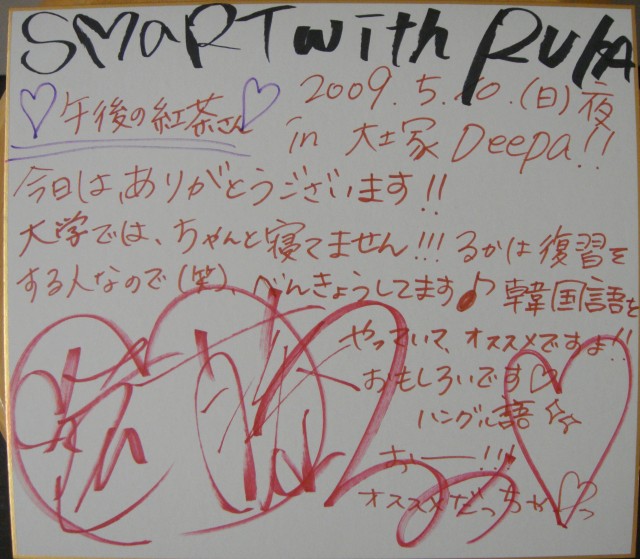 SMaRT with RUKA
♡午後の紅茶さん♡
2009.5.10.(日)夜
in 大塚 Deepa!!
今日は、ありがとうございます!!
大学では、ちゃんと寝てません!!! るかは復習を
する人なので(笑)、べんきょうしてます♪ 韓国語を
やっていて、オススメですよ!!
おもしろいです♡
ハングル語☆☆
おー!!!
オススメだっちゃ♡っ